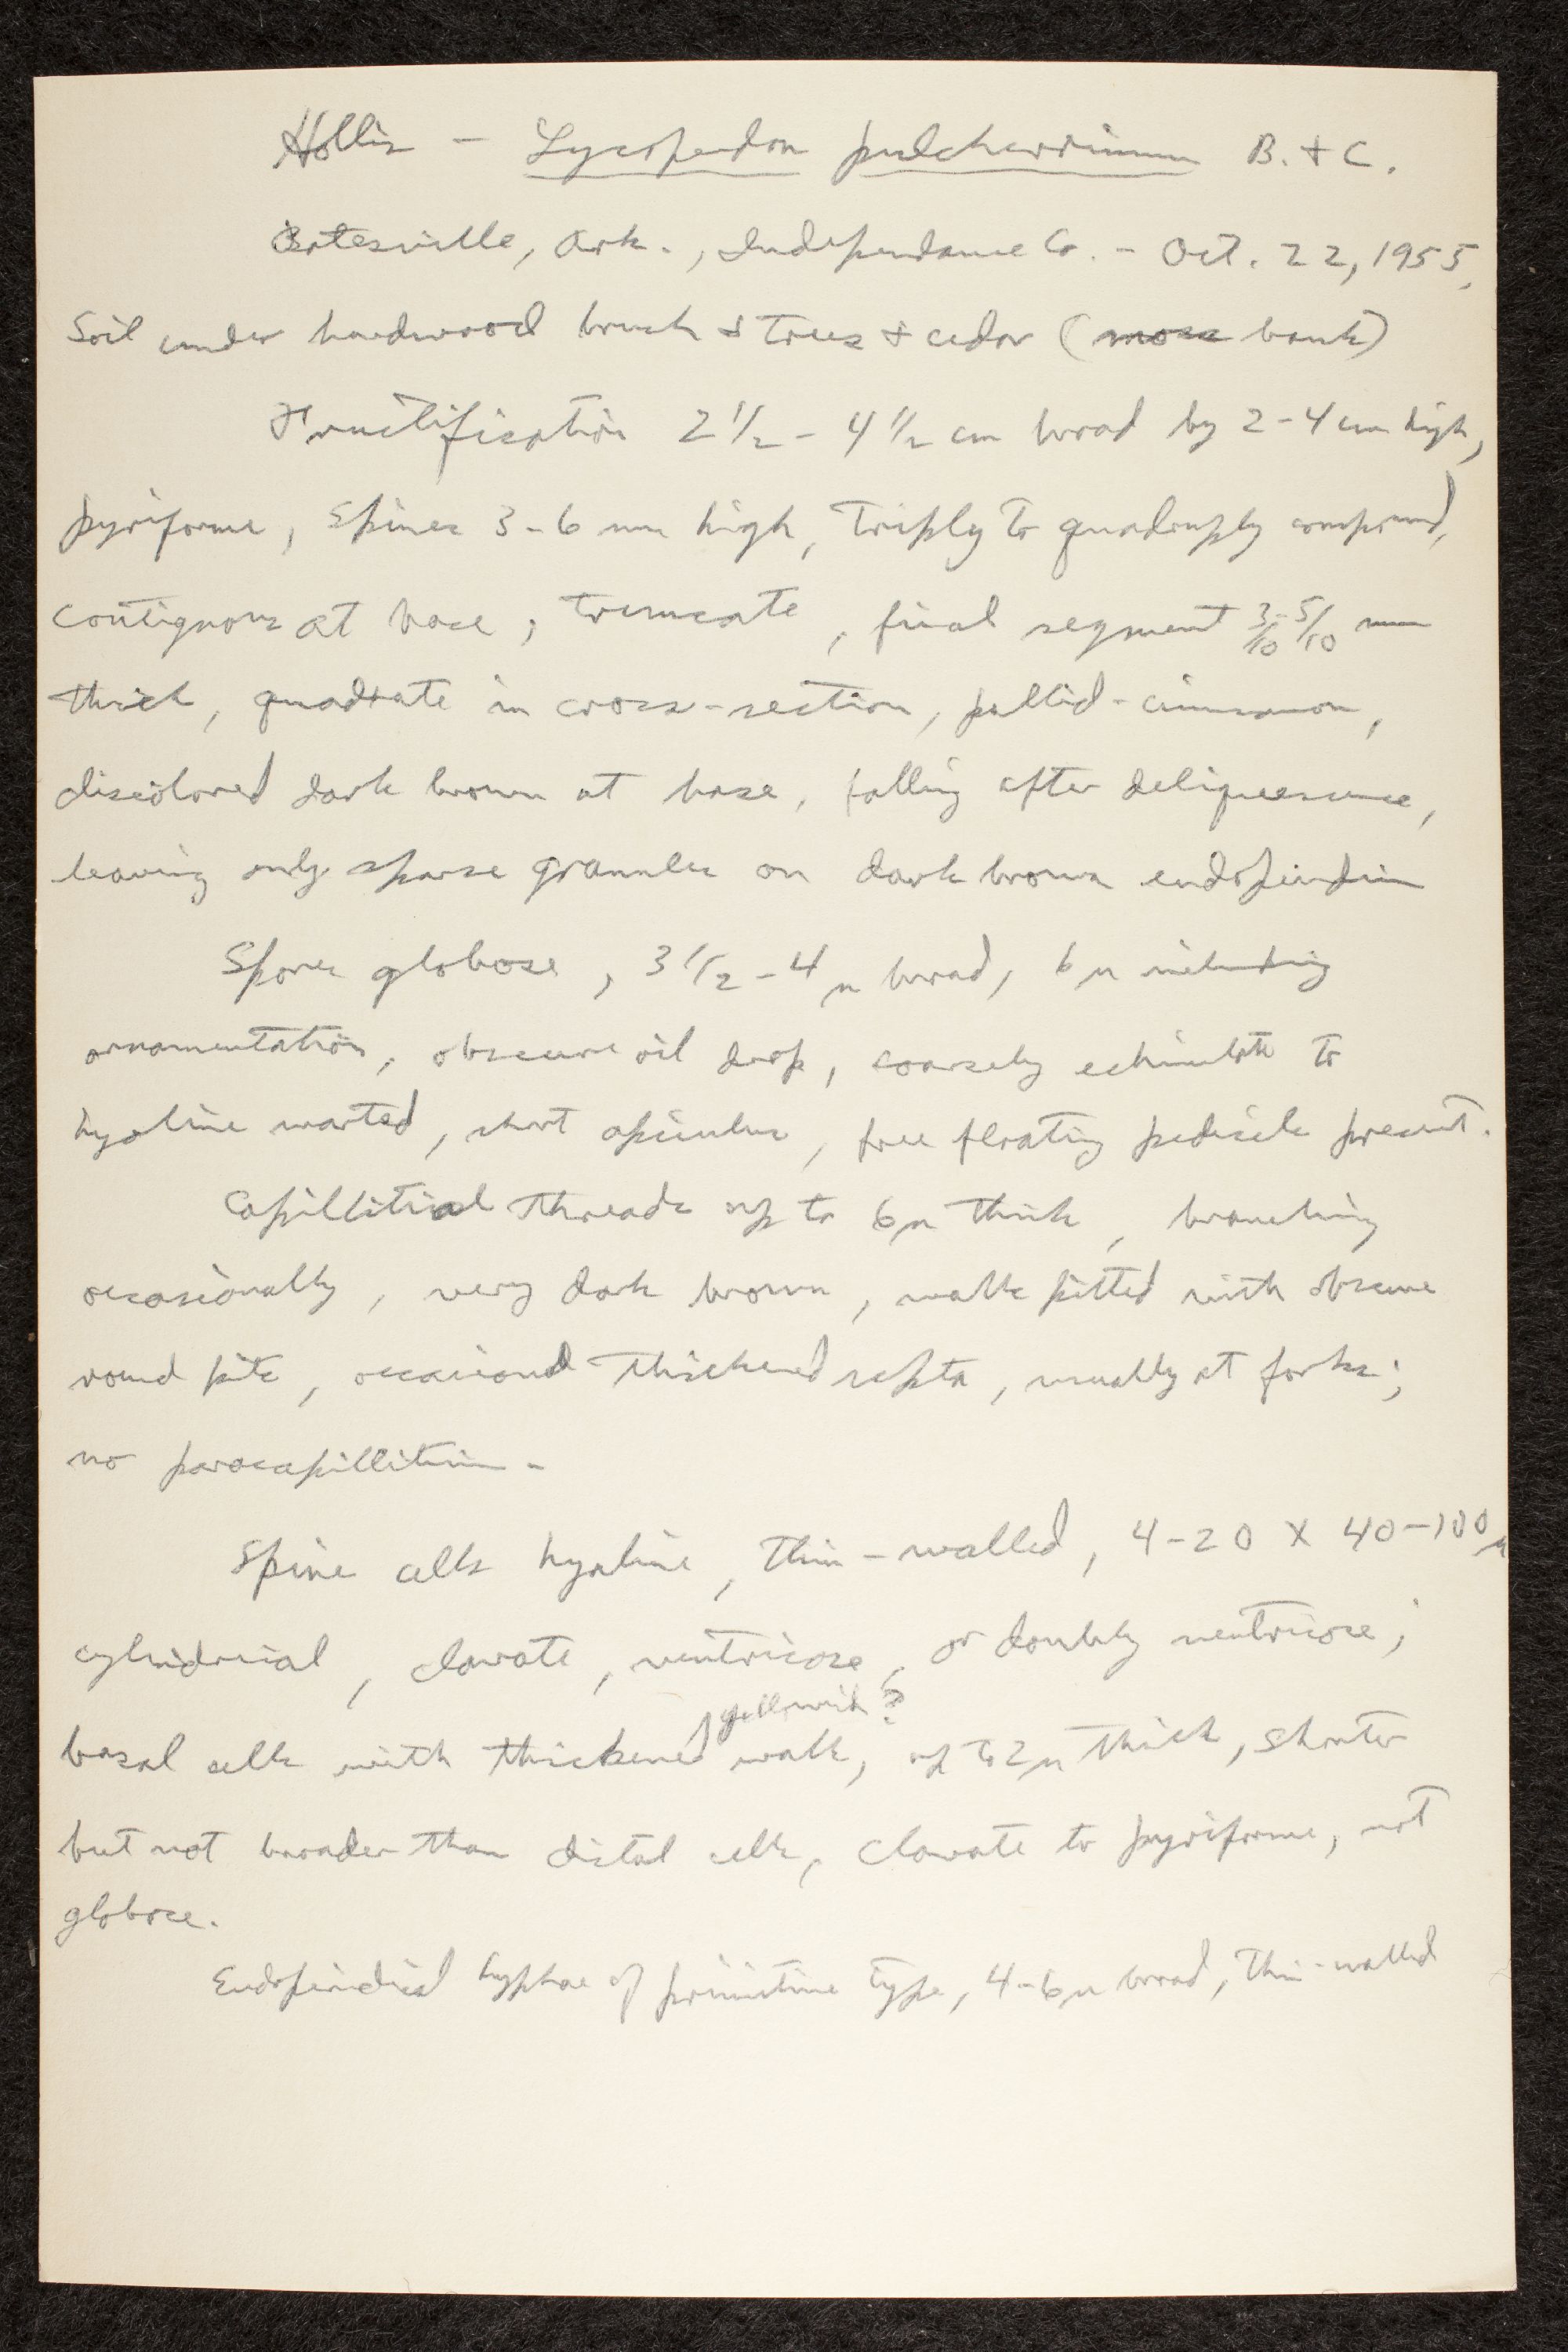 Hollis - Lycoperdon pulcherrimum B. + C.
Batesville, Ark., Independance Co. - Oct. 22, 1955,
Soil under hardwood brush + trees + cedar (moss bank)
Fructification 2 1/2 - 4 1/2 cm broad by 2-4 cm high,
pyriforme, spines 3-6 mm high, triply to quadruply compound,
contiguous at base, truncate, final segment 3/10-5/10 mm
thick, quadrate in cross-section, pallid-cinnamon,
discolored dark brown at base, falling after deliquescence,
leaving only sparse granules on dark brown endoperidium
Spores globose, 3 1/2 - 4 µ broad, 6 µ including
ornamentation, obscure oil drop, coarsely echinulate to
hyaline warted, short apiculus, free floating pedicels present.
Capillitial threads up to 6 µ thick, branching
occasionally, very dark brown, walls pitted with obscure
round pits, occasional thickened septa, usually at forks;
no paracapillitium -
Spine cells hyaline, thin-walled, 4-20 X 40-100 µ
cylindrical, clavate, ventricose, or doubly ventricose;
yellowish?
basal cells with thickened walls, up to 2 µ thick, shorter
but not broader than distal cells, clavate to pyriforme, not
globose.
Endoperidial hyphae of primitive type, 4-6 µ broad, thin-walled